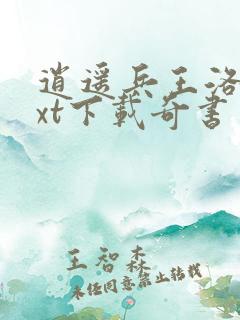 逍遥兵王洛
xt下载奇书
王智森
未经同意禁止转载